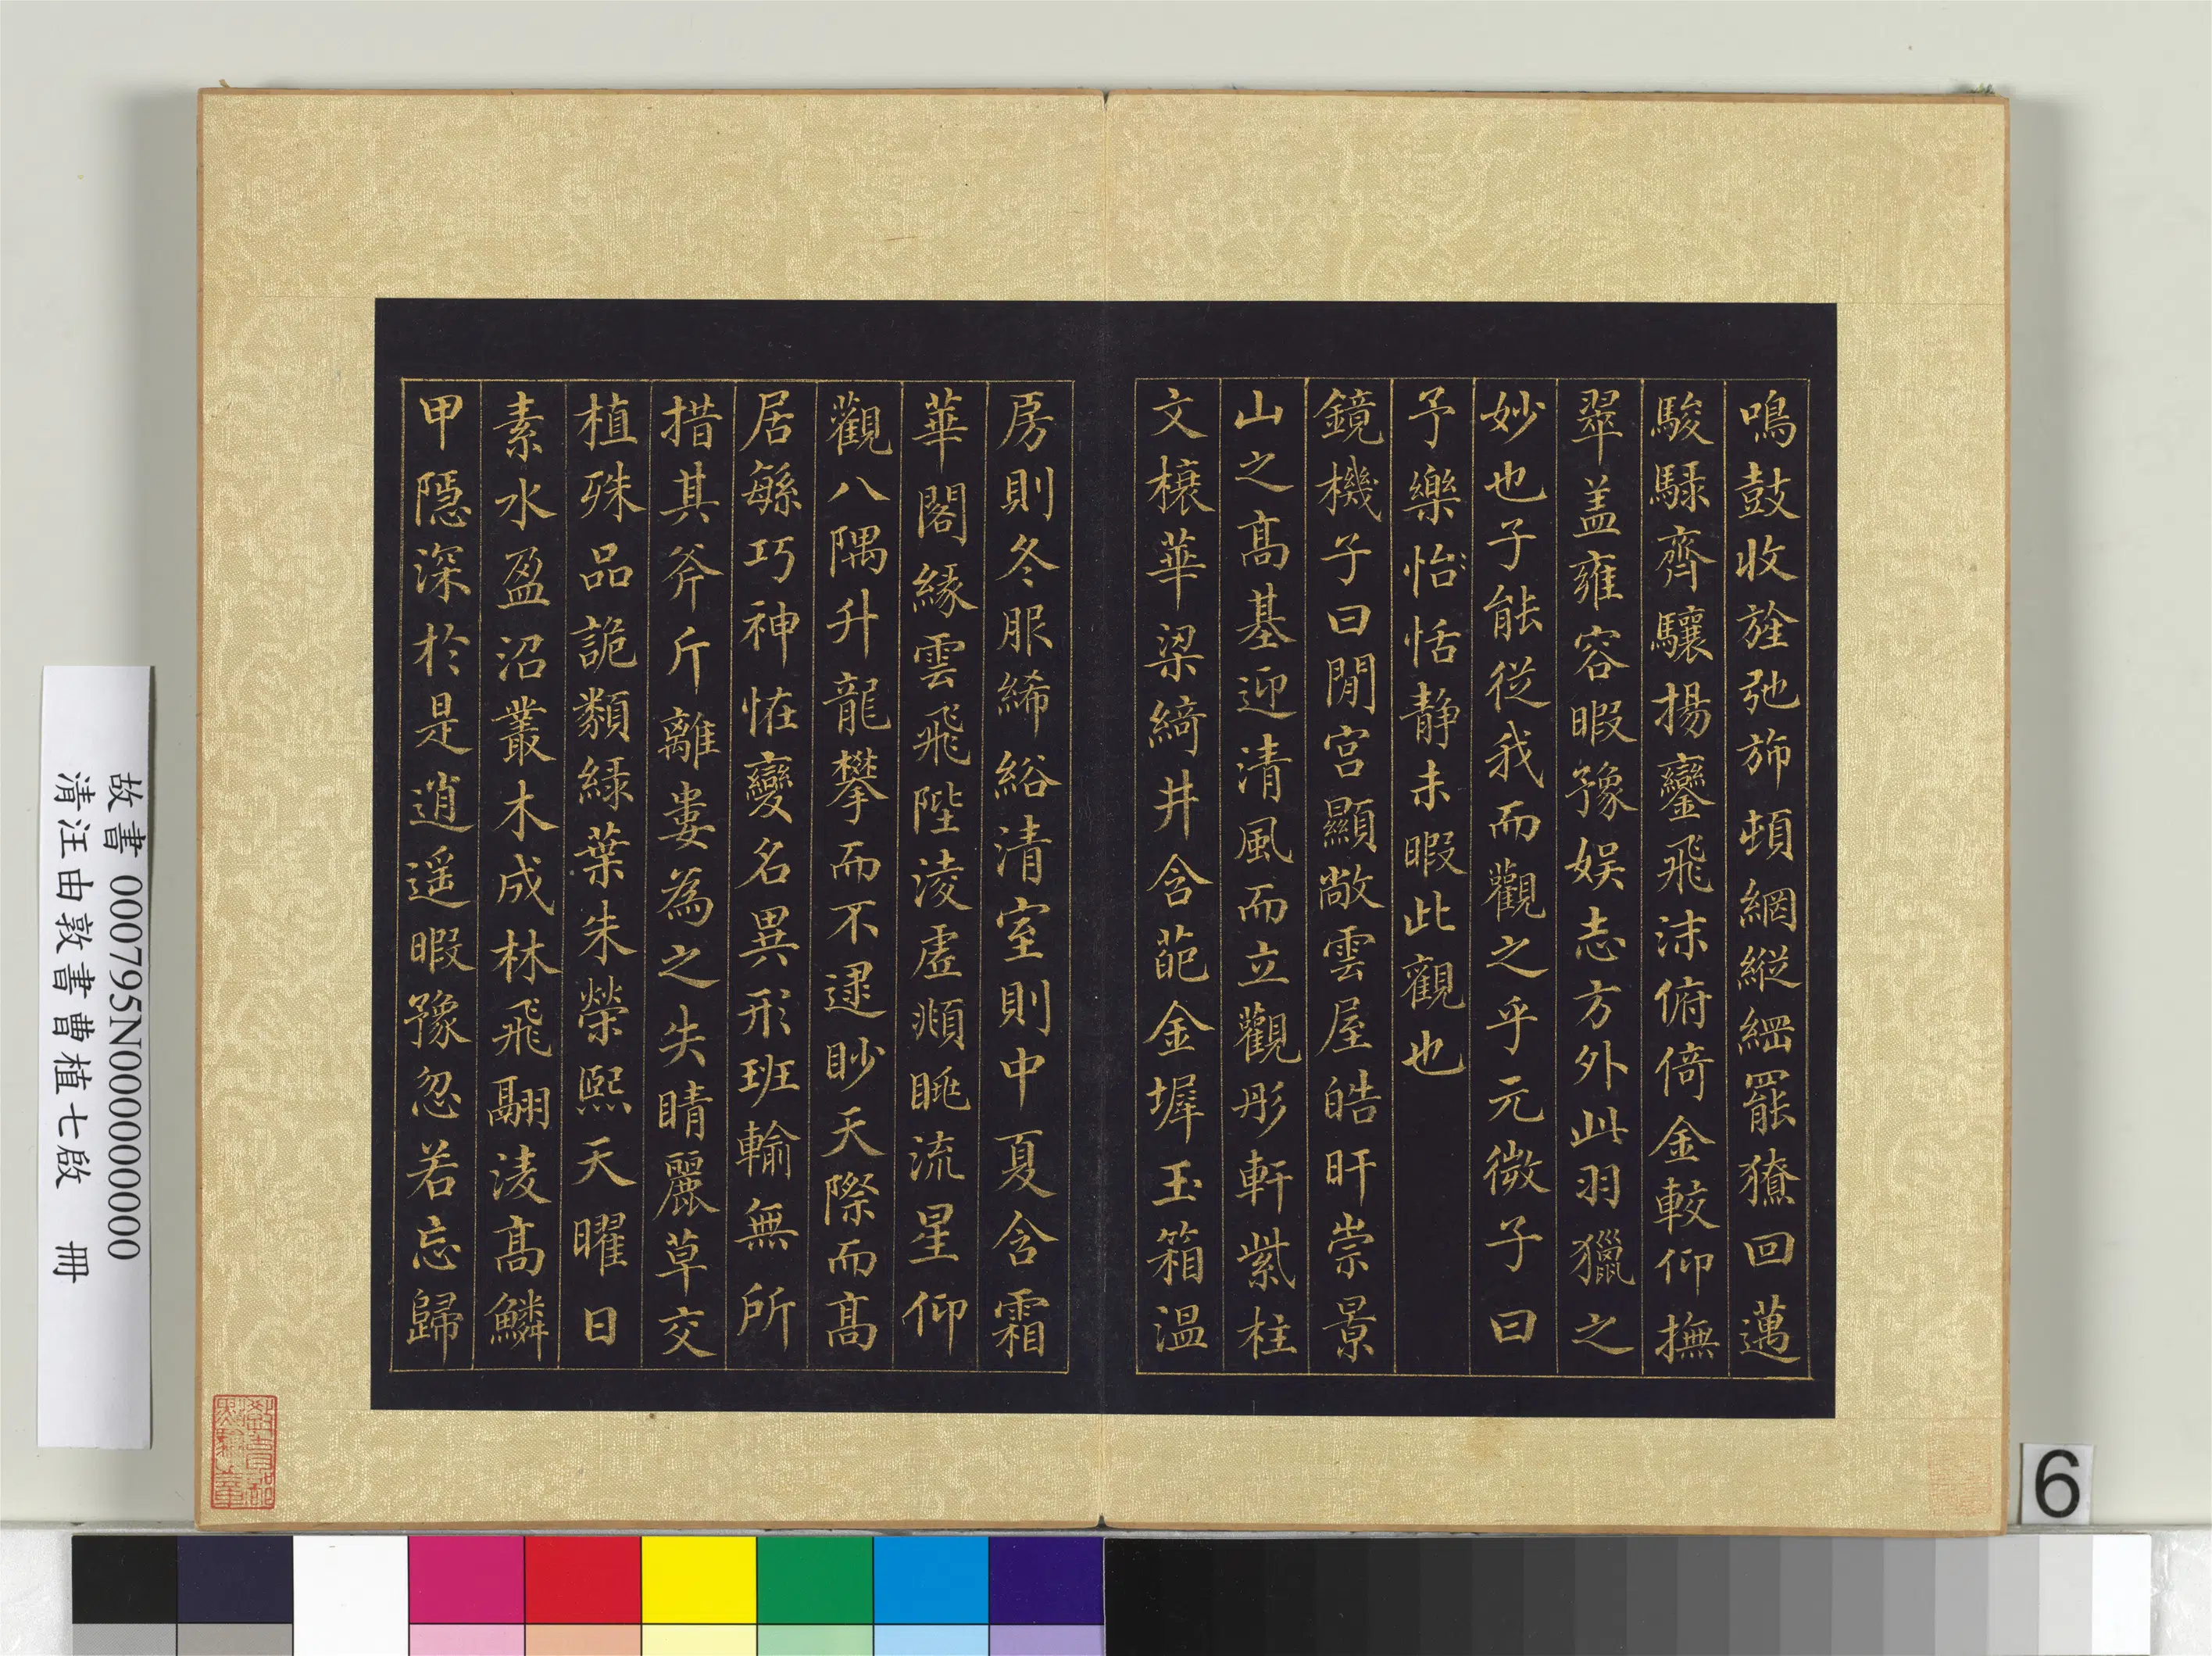 鳴鼓收旌弛斾頓網縱綱罷獠回邁
駿騄齊驤揚鑾飛沫俯倚金較仰撫
翠盖雍容暇豫娱志方外此羽獵之
妙也子能從我而觀之乎元微子曰
予樂怡恬静未暇此觀也
鏡機子曰閒宫顯敞雲屋皓旰崇景
山之髙基迎清風而立觀彤軒紫柱
文榱華梁綺井含葩金墀玉箱温
房則冬服絺綌清室則中夏含霜
華閣緣雲飛陛淩虚頫眺流星仰
觀八隅升龍攀而不逮眇天際而髙
居緐巧神恠變名異形班輸無所
措其斧斤離婁為之失睛麗草交
植殊品詭類緑葉朱榮熙天曜日
素水盈沼叢木成林飛翮淩髙鱗
甲隱深於是逍遥暇豫忽若忘歸
故書 000795N000000000
清汪由敦書曹植七啟 冊
6